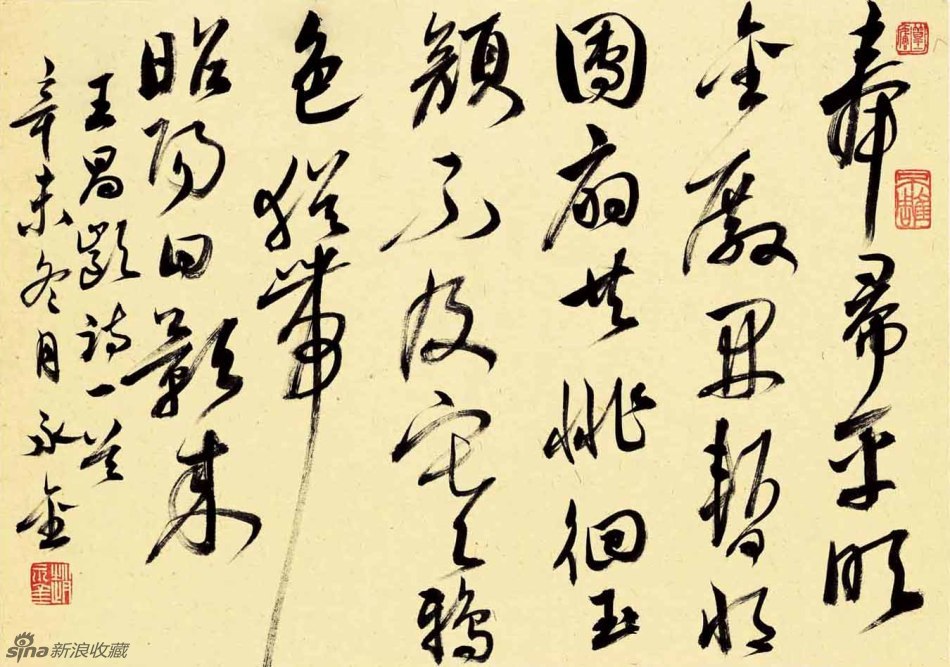 奉帚平明
金殿开暂将
团扇共徘徊玉
颜不及寒鸦
色犹带
昭阳日影来
王昌龄诗一首
辛未冬月永金
sina新浪收藏